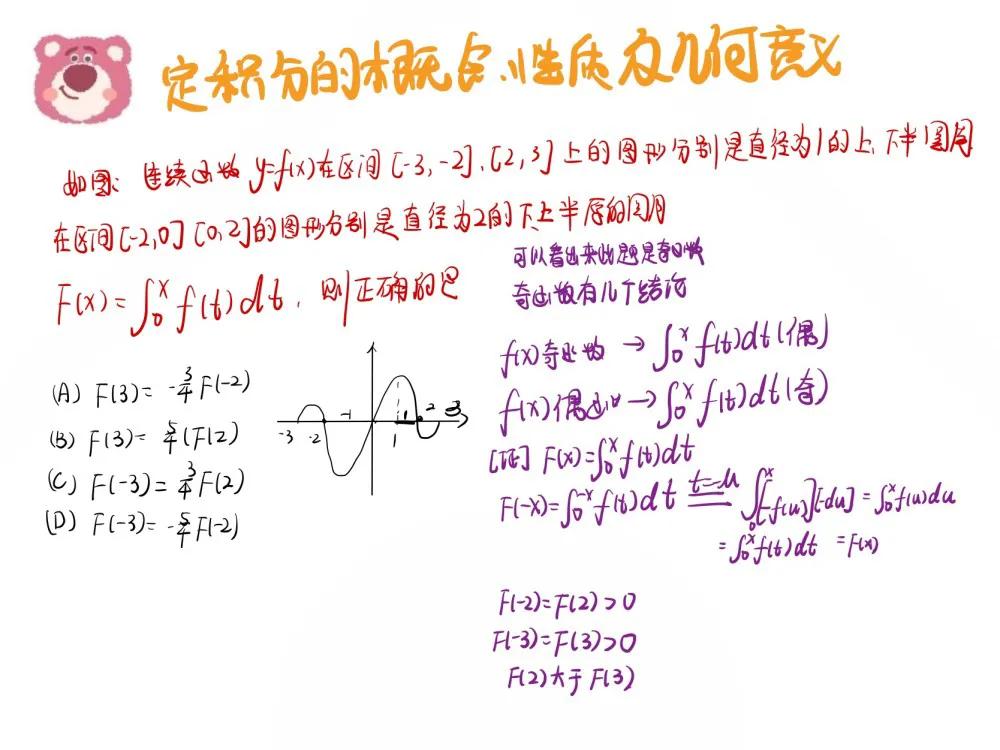 定积分的概念、性质及几何意义
如图:连续函数 y=f(x)在区间 [-3,-2]、[2,3] 上的图形分别是直径为1的上、下半圆周
在区间[-2,0] [0,2]的图形分别是直径为2的下、上半 的圆周
F(x)=∫₀ˣ f(t)dt, 则正确的是
可以看出来此题是奇函数
奇函数有几个结论
f(x)奇函数 → ∫₀ˣ f(t)dt(偶)
f(x)偶函 → ∫₀ˣ f(t)dt(奇)
[证] F(x)=∫₀ˣ f(t)dt
F(-x)=∫₀⁻ˣ f(t)dt t=-u ∫₀ˣ[-f(u)][-du] = ∫₀ˣ f(u)du
= ∫₀ˣ f(t)dt = F(x)
F(-2)=F(2)>0
F(-3)=F(3)>0
F(2)大于 F(3)
(A) F(3)= -3/4 F(-2)
(B) F(3)= 5/4 (F(2)
(C) F(-3)= 3/4 F(2)
(D) F(-3)= -5/4 F(-2)
-3 -2 -1 1 1 2 3